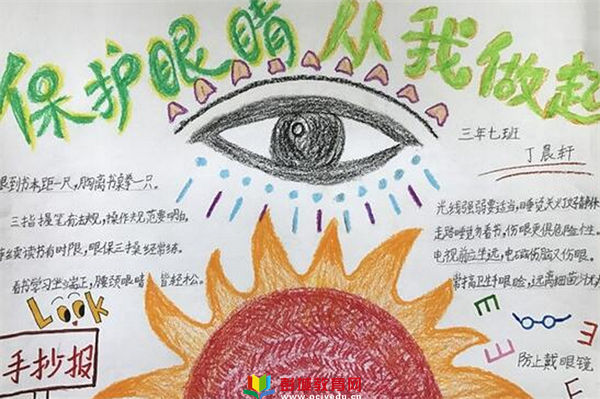 保护眼睛从我做起
三年七班
丁晨轩
眼到书本距一尺,胸离书桌拳一只。
三指握笔有法规,操作规范要明白。
连续读书有时限,眼保三操经常练。
看书学习坐端正,腰颈眼睛皆轻松。
光线强弱要适当,睡觉关火
走路睡觉勿看书,伤眼更俱危险性。
电视前立坐远,电磁伤脑又伤眼。
常搞卫生手眼脸,远离细菌少
Look
手抄报
E
E
E
E
E
防止戴眼镜
教育网